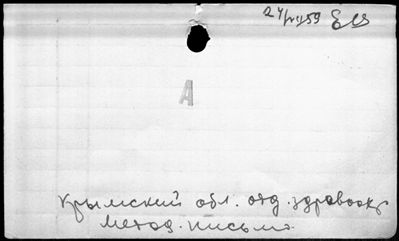 24/VII 59
А
Крымский обл. отд. здравоохр
метод. письма